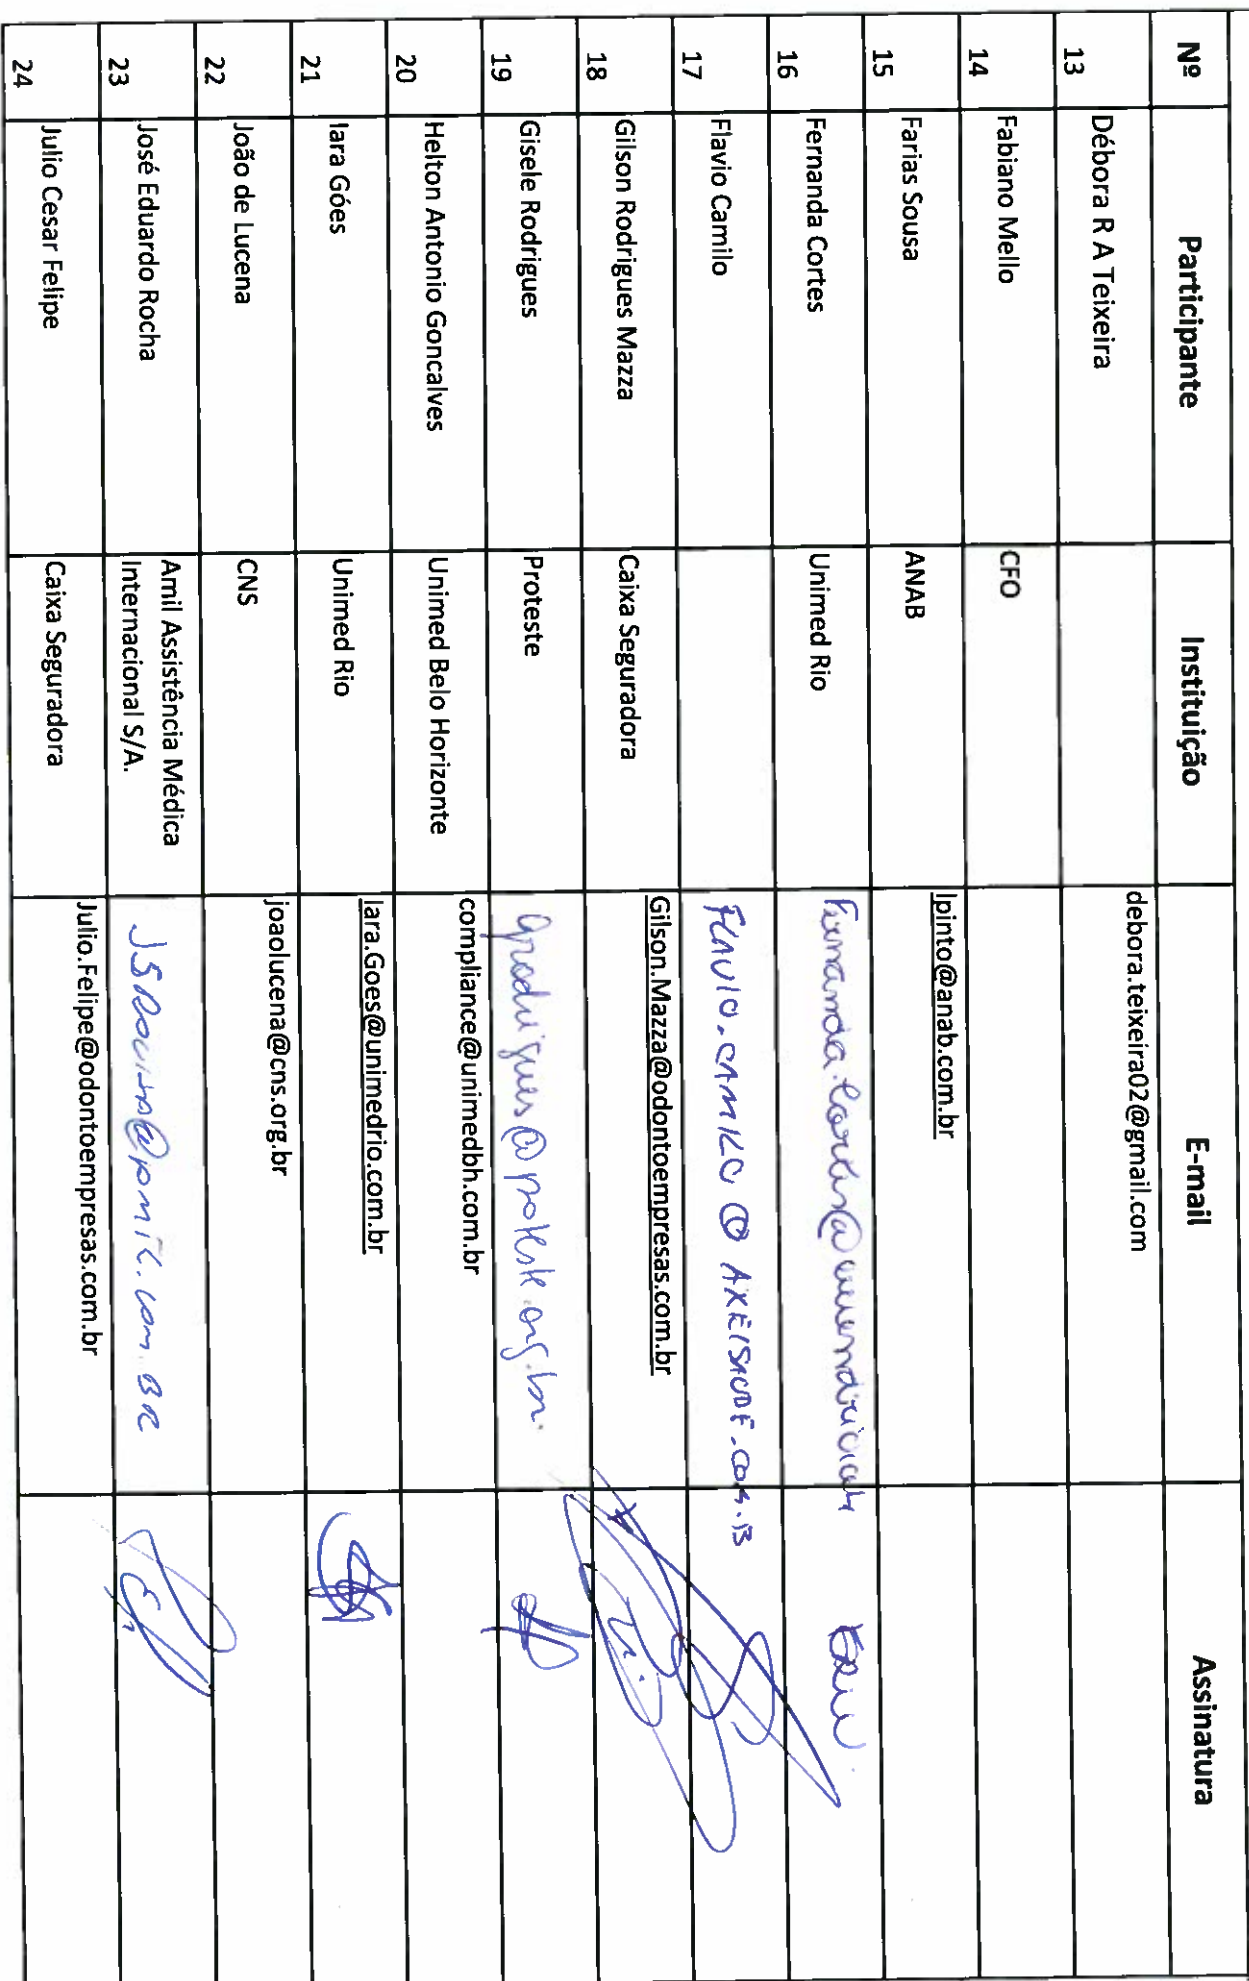 Nº Participante Instituição E-mail Assinatura
13 Débora R A Teixeira debora.teixeira02@gmail.com
14 Fabiano Mello CFO
15 Farias Sousa ANAB lpinto@anab.com.br
16 Fernanda Cortes Unimed Rio
17 Flavio Camilo FLAVIO.CAMILO@AXEISAUDE.COM.B
18 Gilson Rodrigues Mazza Caixa Seguradora Gilson.Mazza@odontoempresas.com.br
19 Gisele Rodrigues Proteste grodrigues@proteste.org.br
20 Helton Antonio Goncalves Unimed Belo Horizonte compliance@unimedbh.com.br
21 Iara Góes Unimed Rio Iara.Goes@unimedrio.com.br
22 João de Lucena CNS joaolucena@cns.org.br
23 José Eduardo Rocha Amil Assistência Médica
Internacional S/A.
24 Julio Cesar Felipe Caixa Seguradora Julio.Felipe@odontoempresas.com.br